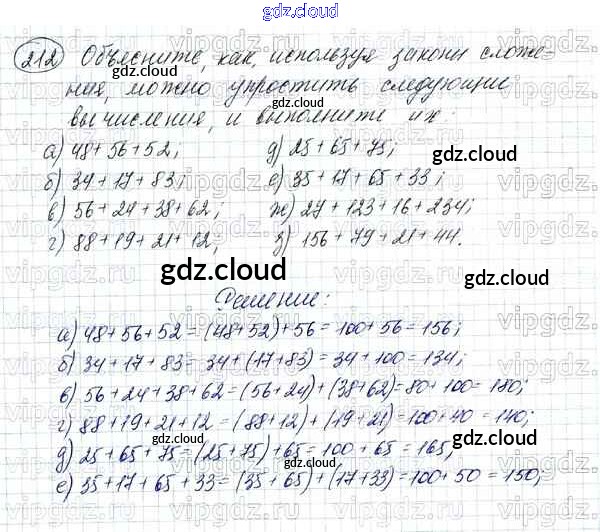 gdz.cloud
212 Объясните, как, используя законы сложе-
ния, можно упростить следующие
вычисления, и выполните их:
а) 48+56+52; д) 25+65+75;
б) 34+17+83; е) 35+17+65+33;
в) 56+24+38+62; ж) 27+123+16+234;
г) 88+19+21+12; з) 156+79+21+44.
gdz.cloud
Решение:
а) 48+56+52=(48+52)+56=100+56=156;
б) 34+17+83=34+(17+83)=34+100=134;
в) 56+24+38+62=(56+24)+(38+62)=80+100=180;
г) 88+19+21+12=(88+12)+(19+21)=100+40=140;
д) 25+65+75=(25+75)+65=100+65=165;
е) 35+17+65+33=(35+65)+(17+33)=100+50=150;